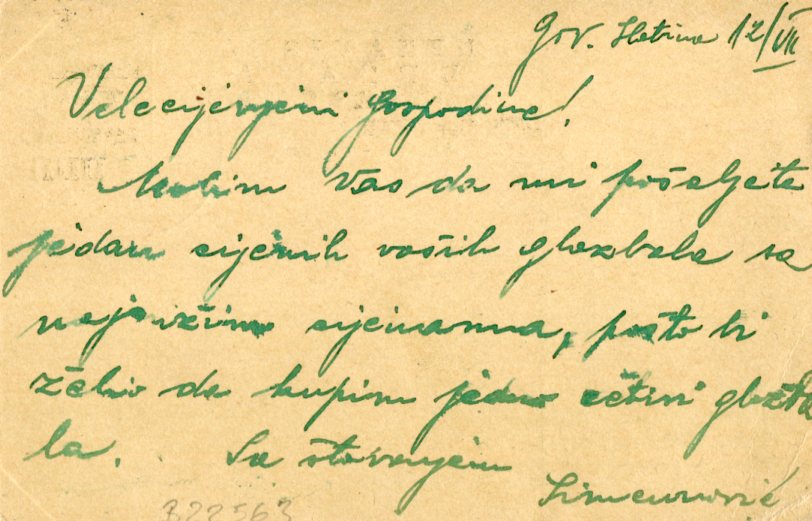 Gor. Slatina 12/VII
Velecijenjeni Gospodine!
Molim Vas da mi pošaljete
jedan cijenik vaših glazbala sa
najnižim cijenama, pošto bi
želio da kupim jedno četiri glazba
la. Sa štovanjem
Simeunović
B22563